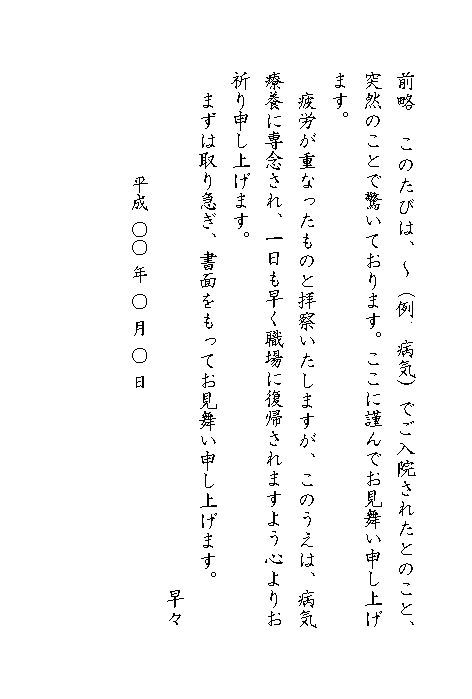 前略　このたびは、～（例、病気）でご入院されたとのこと、
突然のことで驚いております。ここに謹んでお見舞い申し上げ
ます。
　疲労が重なったものと拝察いたしますが、このうえは、病気
療養に専念され、一日も早く職場に復帰されますよう心よりお
祈り申し上げます。
　まずは取り急ぎ、書面をもってお見舞い申し上げます。
早々
平成 〇〇 年 〇 月 〇 日